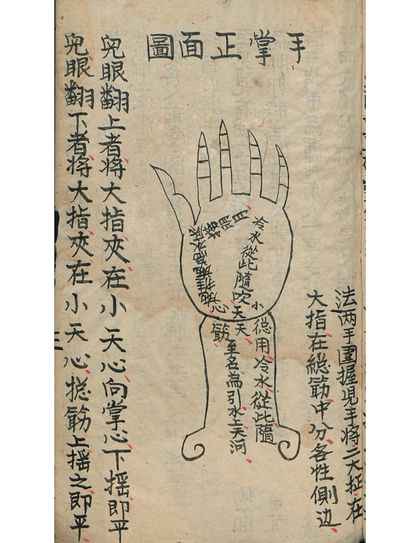 手掌正面圖
法两手圍握児手將二大指在
大指在総筋中分各性側边
冷水從此隨吹天
小
心
天
筋
用冷水從此隨
至名為引水上天河
児眼翻上者将大指夾在小天心向掌心下揺即平
児眼翻下者将大指夾在小天心捴筋上揺之即平